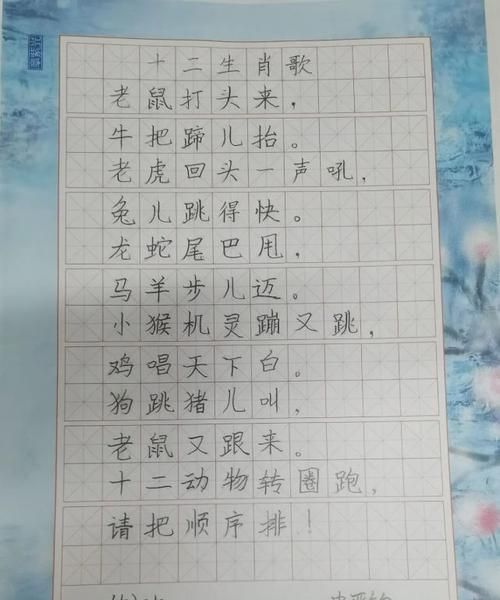 十二生肖歌
老鼠打头来，
牛把蹄儿抬。
老虎回头一声吼，
兔儿跳得快。
龙蛇尾巴甩，
马羊步儿迈。
小猴机灵蹦又跳，
鸡唱天下白。
狗跳猪儿叫，
老鼠又跟来。
十二动物转圈跑，
请把顺序排！